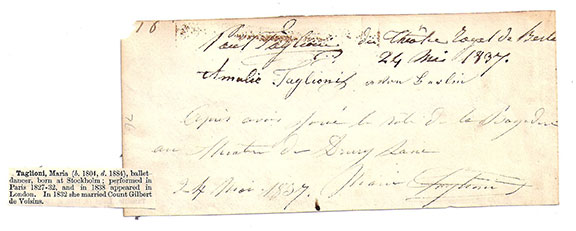 Paul Taglioni du Théâtre Royal de Berlin
24 Mai 1837.
Amalie Taglioni von Berlin
Après avoir joué le role de la Bayadère
au theatre de Drury Lane
24 Mai 1837. Marie Taglioni
Taglioni, Maria (b. 1804, d. 1884), ballet-
dancer, born at Stockholm; performed in
Paris 1827-32, and in 1838 appeared in
London. In 1832 she married Count Gilbert
de Voisins.